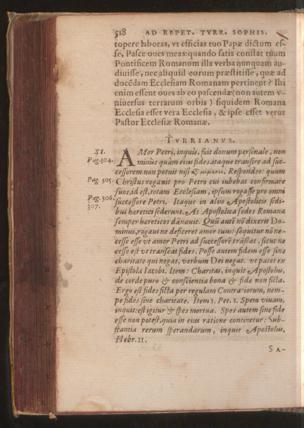 518 AD REPET. TVRR. SOPHIS.
topere laboras, vt efficias tuo Papæ dictum es-
se, Pasce oues meas: quando satis constat istum
Pontificem Romanum illa verba nunquam au-
diuisse, nec aliquid eorum præstitisse, quæ ad
docēdam Ecclesiam Romanam pertinent? Ibi
enim essent oues ab eo pascendæ (non autem v-
niuersus terrarum orbis) siquidem Romana
Ecclesia esset vera Ecclesia, & ipse esset verus
Pastor Ecclesiæ Romanæ.
TVRRIANVS.
51. AMor Petri, inquis, fuit donum personale, non
Pag. 304. minus quàm eius fides, ataque transire ad suc-
cessorem non potuit nisi Respondeo: quum
Pag. 305. Christus rogauit pro Petri cui iubebat confirmare
suos, id est, totam Ecclesiam, ipsum rogasse pro omni
Pag. 306. successore Petri. Itaque in aliis Apostolicis sedi-
307. bus hæretici sederunt. At Apostolica sedes Romana
semper hæreticos dānauit. Quū autē nō dixerit Do-
minus, rogaui ne deficeret amor tuus: sequitur nō ne-
cesse esse vt amor Petri ad successorē transeat, sicut ne-
cesse est vt transeat fides. Posse autem fidem esse sine
charitate qui negat, verbum Dei negat. vt patet ex
Epistola Iacobi. Item: Charitas, inquit Apostolus,
de corde puro & conscientia bona & fide non ficta.
Ergo est fides ficta per regulam Contrariorum, nem-
pe fides sine charitate. Item 1. Pet. 1. Spem viuam,
inquit: est igitur & spes mortua. Spes autem sine fide
esse non potest, quia in eius ratione continetur: Sub-
stantia rerum sperandarum, inquit Apostolus,
Hebr. 11.
S A-